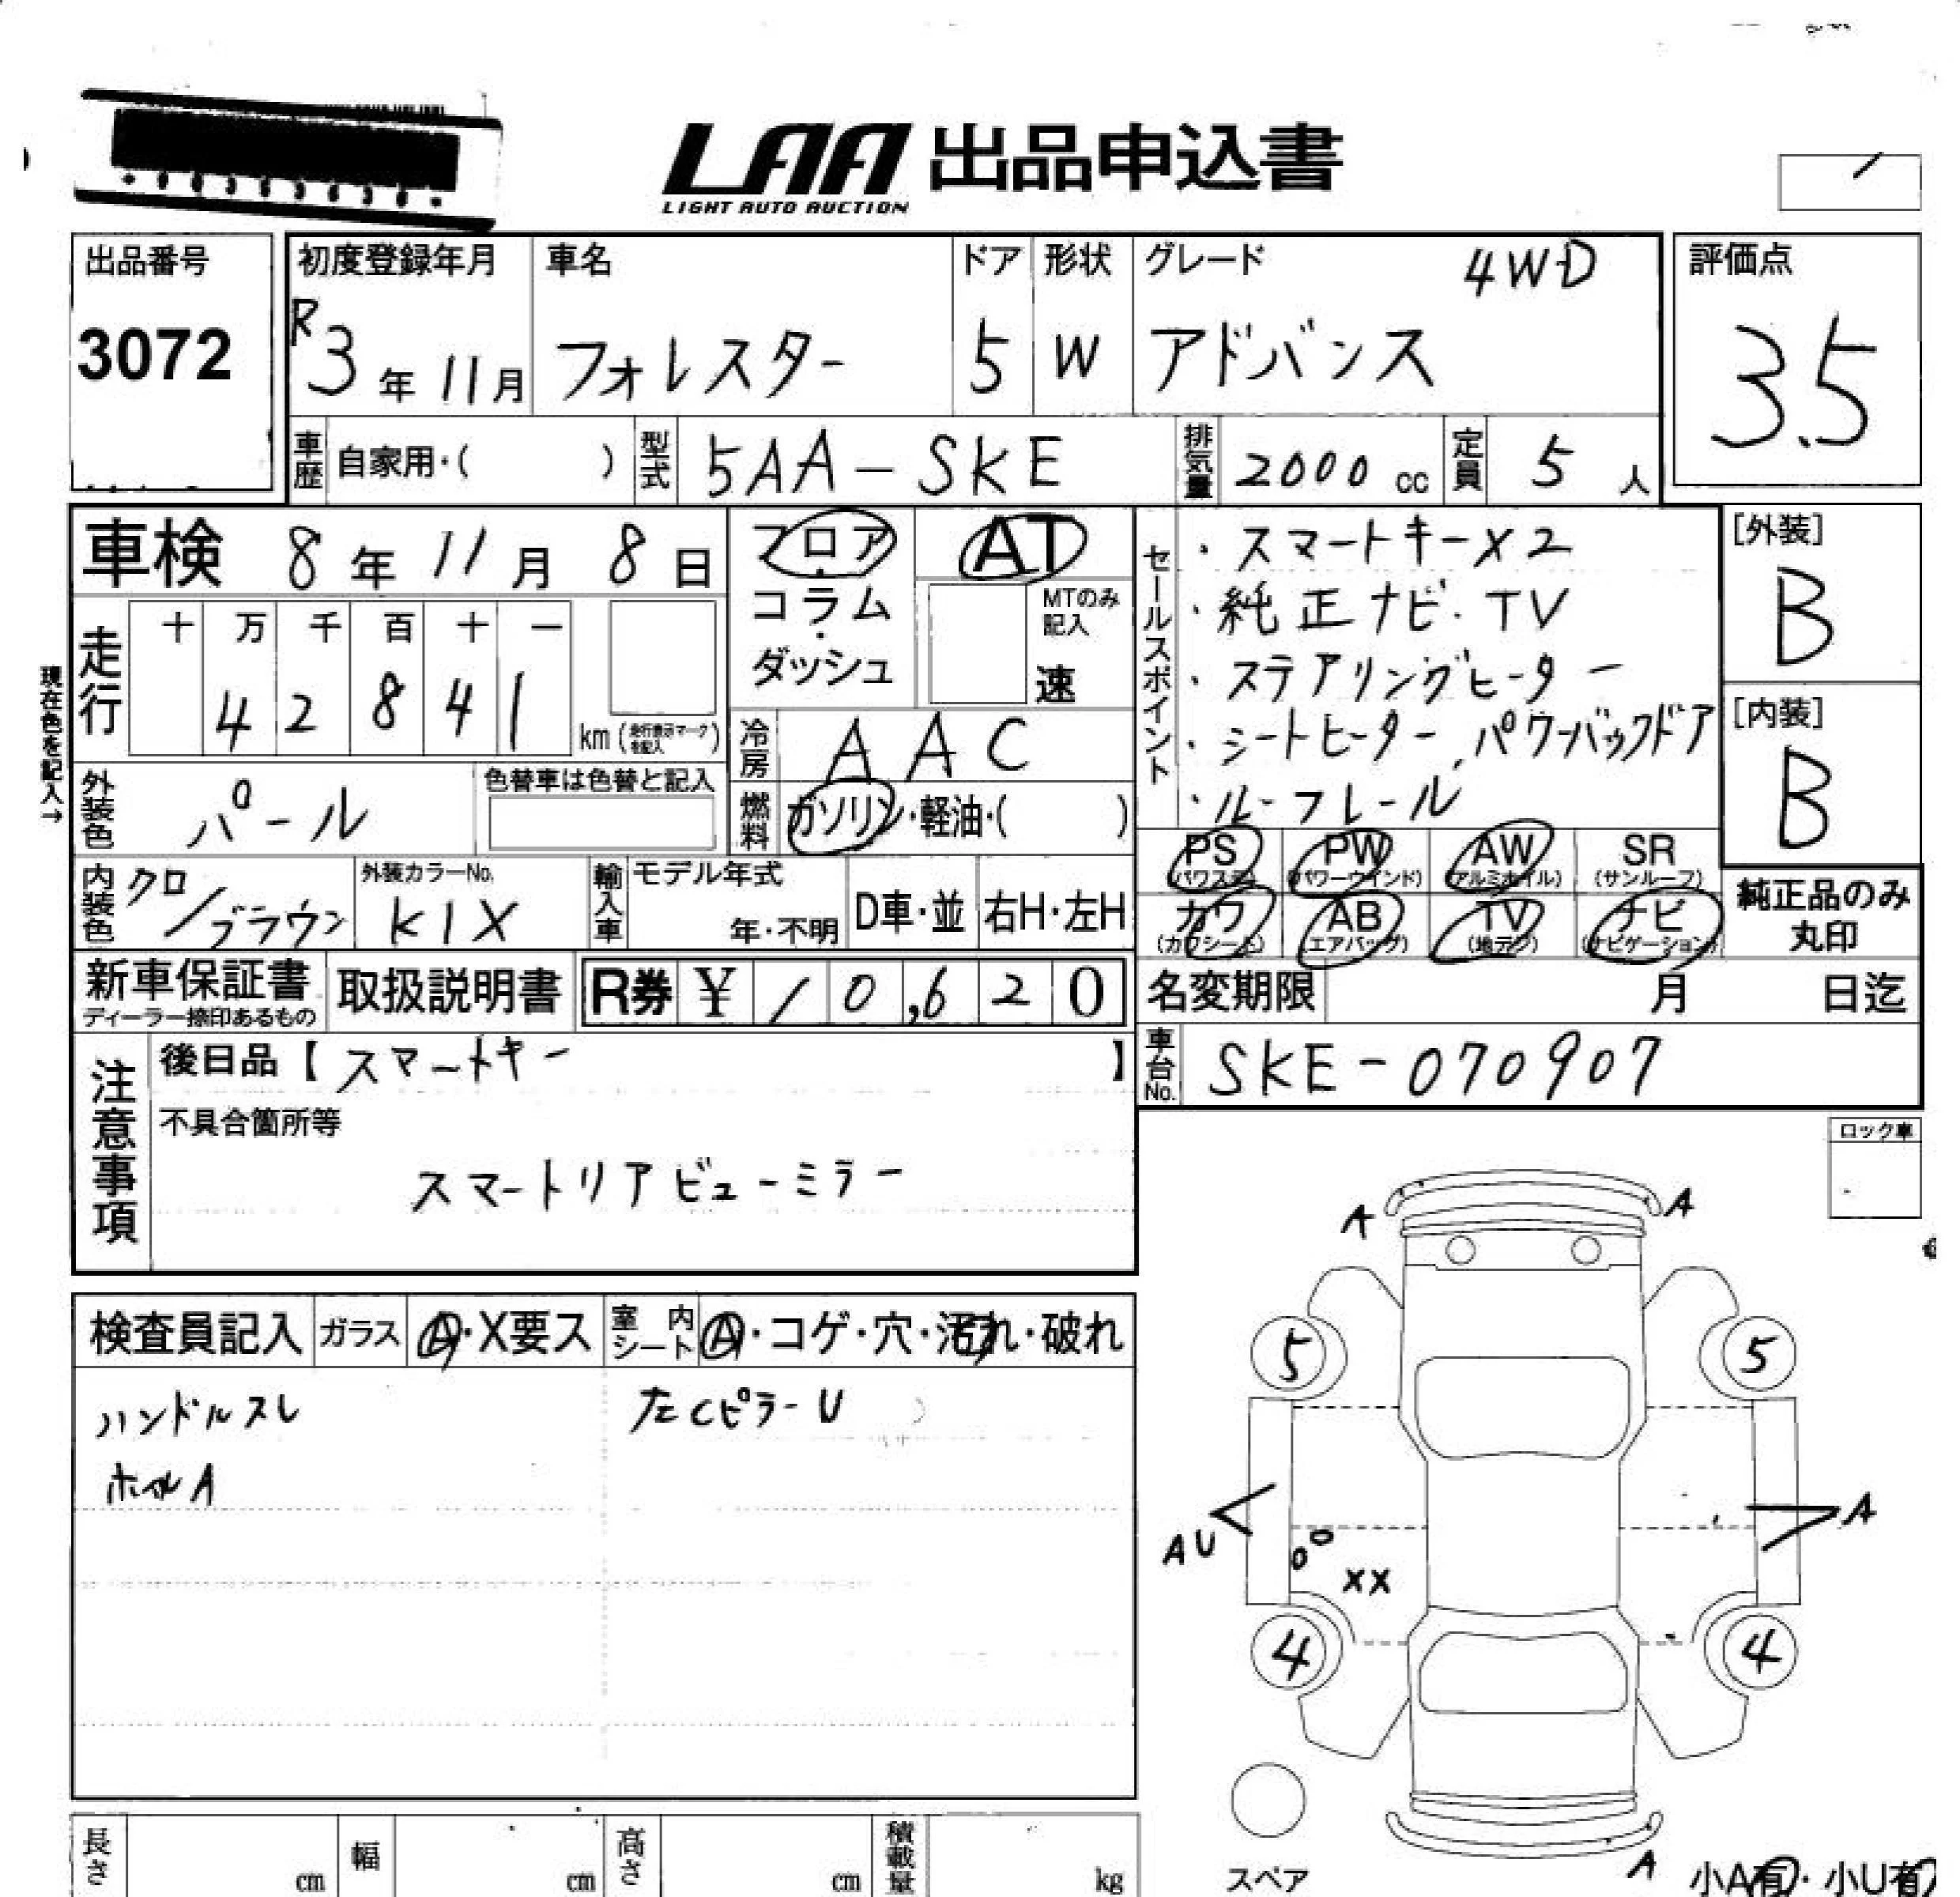 LAA 出品申込書
LIGHT AUTO AUCTION
出品番号
3072
初度登録年月
R3年11月
車名
フォレスター
ドア
5
形状
W
グレード
4WD
アドバンス
評価点
3.5
車歴 自家用・( )
型式 5AA-SKE
排気量 2000 cc
定員 5 人
車検 8年11月8日
走行
十 万 千 百 十 一
4 2 8 4 1
km (走行表示マークを記入)
現在色を記入→
外装色 パール
色替車は色替と記入
フロア・コラム・ダッシュ
AT
MTのみ記入
速
冷房 AAC
燃料 ガソリン・軽油・( )
セールスポイント
・スマートキーX2
・純正ナビ・TV
・ステアリングヒーター
・シートヒーター、パワーバックドア
・ルーフレール
[外装]
B
[内装]
B
内装色 クロ/ブラウン
外装カラーNo.
K1X
輸入車
モデル年式
年・不明
D車・並
右H・左H
PS (パワステ)
PW (パワーウインド)
AW (アルミホイル)
SR (サンルーフ)
カワ (カワシート)
AB (エアバッグ)
TV (地デジ)
ナビ (ナビゲーション)
純正品のみ
丸印
新車保証書
ディーラー捺印あるもの
取扱説明書
R券 ¥10,620
名変期限 月 日迄
車台No. SKE-070907
注意事項
後日品【スマートキー 】
不具合箇所等
スマートリアビューミラー
ロック車
検査員記入
ガラス A・X要ス
室内シート A・コゲ・穴・汚れ・破れ
ハンドルスレ
ホイルA
左CピラーU
A
A
5
5
AU
XX
A
4
4
A
スペア
小A有・小U有
長さ cm
幅 cm
高さ cm
積載量 kg